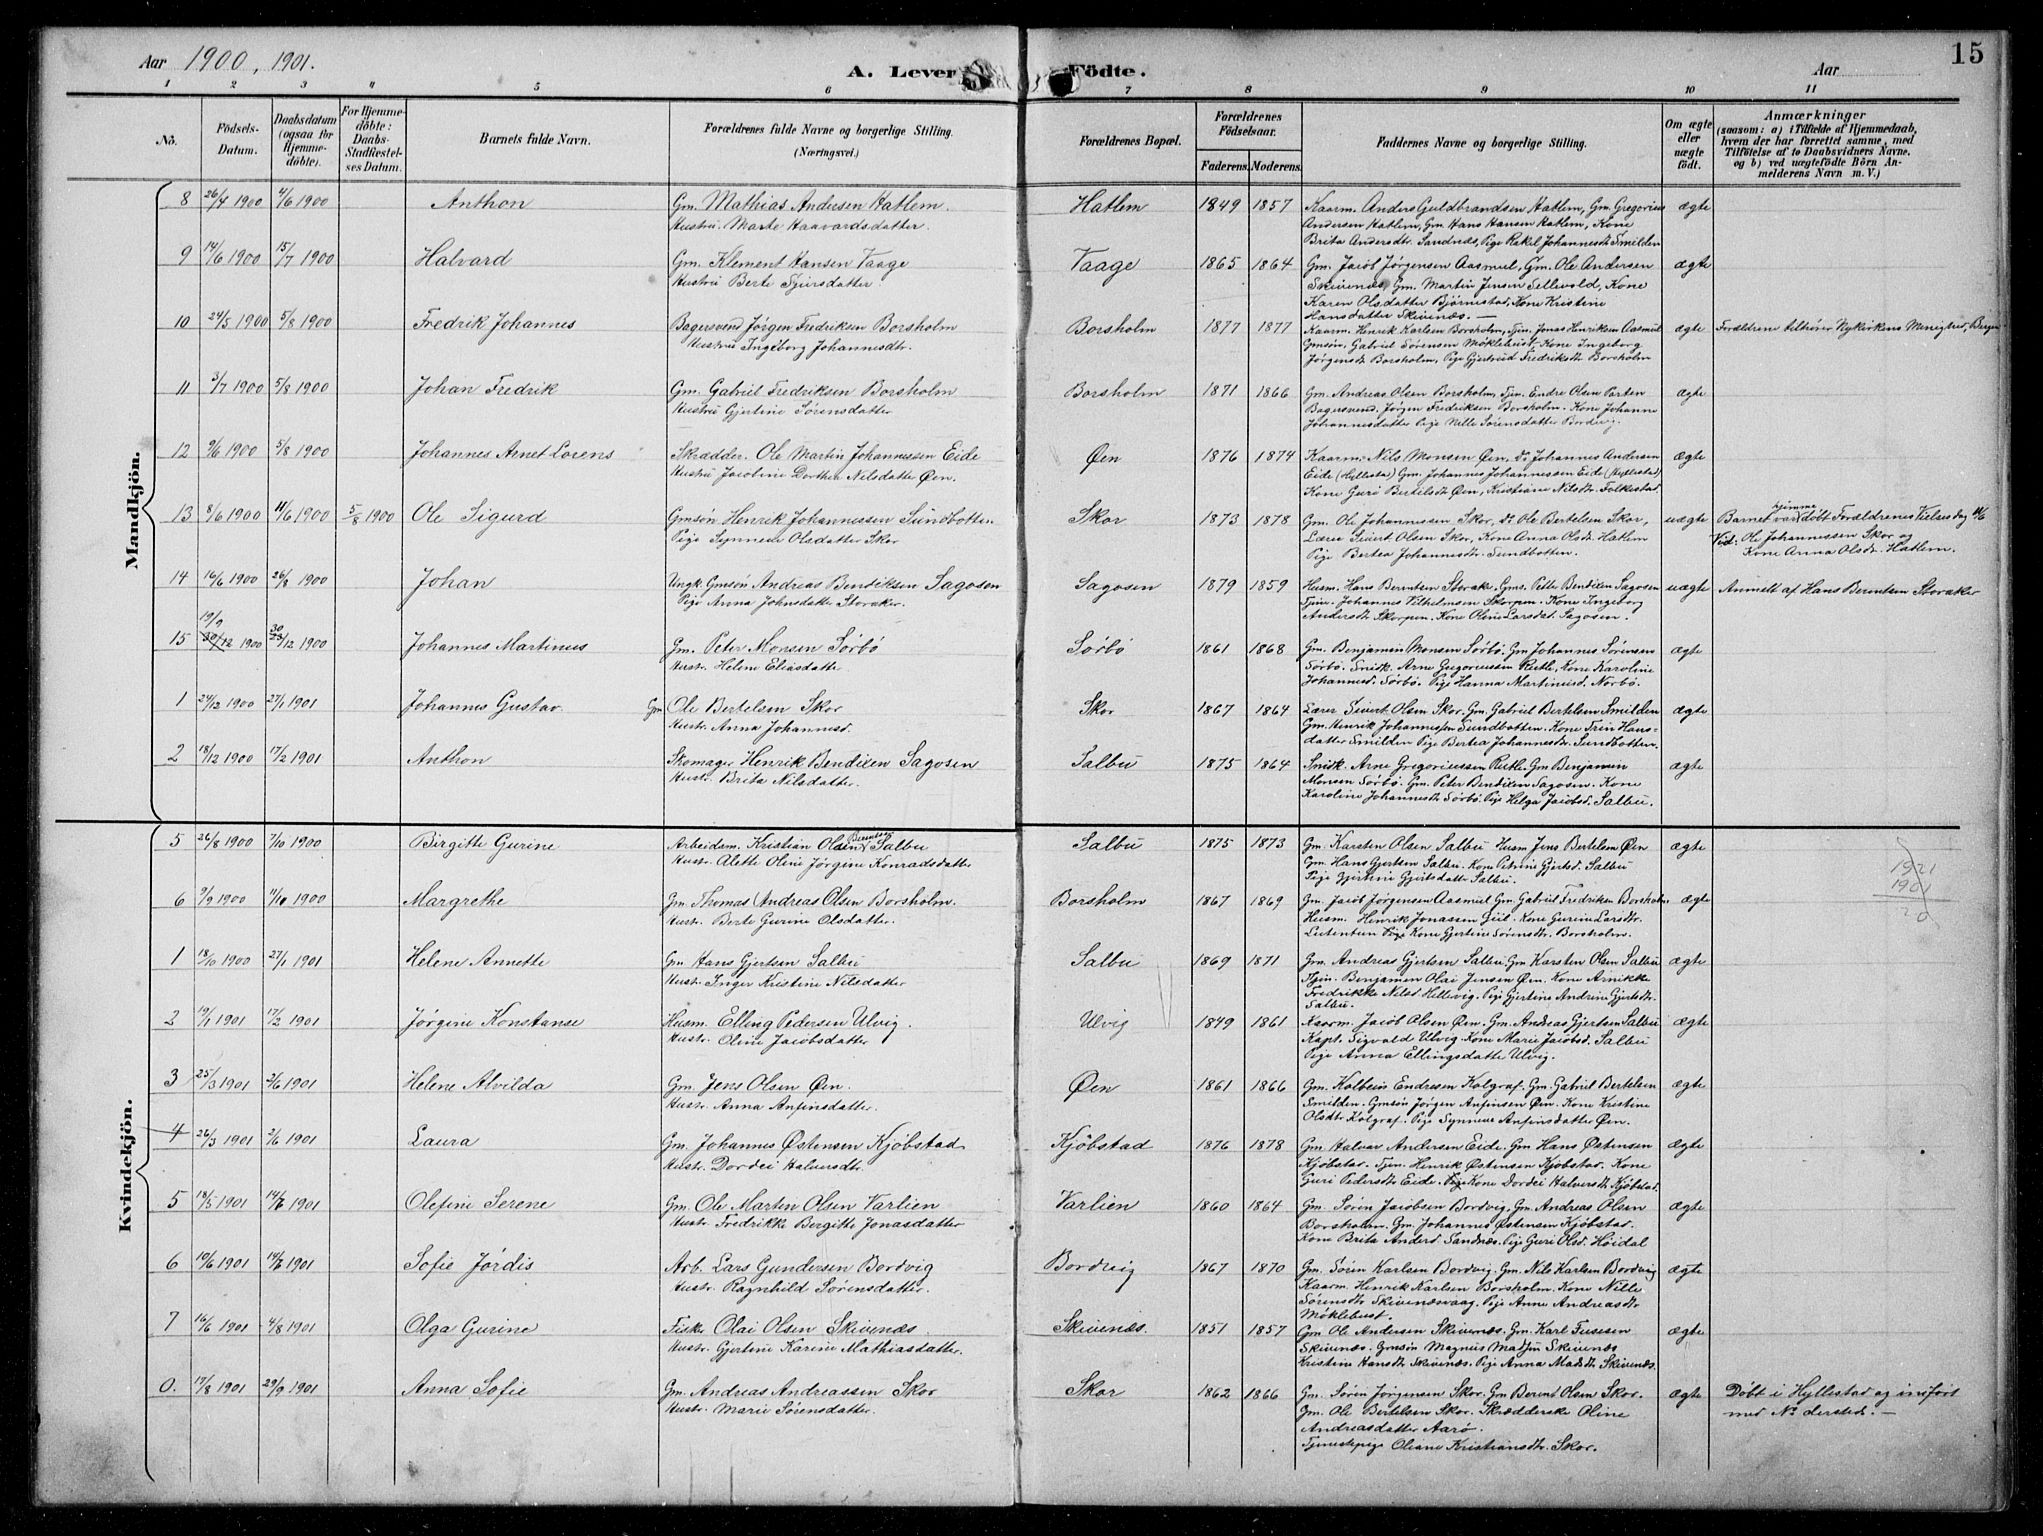 Aar 1900, 1901.
A. Levende Födte.
Aar
15
1 2 3 4 5 6 7 8 9 10 11
No.
Födsels-Datum.
Daabsdatum (ogsaa for Hjemmedöbte).
For Hjemmedöbte: Daabs-Stadfæstelses Datum.
Barnets fulde Navn.
Forældrenes fulde Navne og borgerlige Stilling.
(Næringsvei.)
Forældrenes Bopæl.
Forældrenes Födselsaar.
Faderens. Moderens.
Faddernes Navne og borgerlige Stilling.
Om ægte eller uægte födt.
Anmærkninger
(saasom: a) i Tilfælde af Hjemmedaab, hvem der har forrettet samme, med Tilföielse af to Daabsvidners Navne, og b) ved uægtefödte Börn Anmelderens Navn m. V.)
Mandkjön.
8 26/4 1900 4/6 1900 Anthon Gm. Mathias Andersen Hatlem. Hatlem 1849 1857 Kaarm. Anders Guldbrandsen Hatlem, Gm. Gregorius ægte
Hustru Marte Haavardsdatter. Andersen Hatlem, Gm Hans Hansen Hatlem, Kone
Brita Andersdtr. Sandnæs, Pige Rakel Johannesdtr Smilden
9 14/6 1900 15/7 1900 Halvard Gm. Klement Hansen Vaage Vaage 1865 1864 Gm. Jacob Jørgensen Aasmul, Gm. Ole Andersen ægte
Hustru Berte Sjursdatter. Skivenæs, Gm. Martin Jensen Sellevold, Kone
Karen Olsdatter Bjørnestad, Kone Kristine
Hansdatter Skivenæs. —
10 24/5 1900 5/8 1900 Fredrik Johannes Bagersvend Jørgen Fredriksen Borsholm Borsholm 1877 1877 Kaarm. Henrik Karlsen Borsholm, Tjen. Jonas Henriksen Aasmul ægte Forældrene tilhører Nykirkens Menighed, Bergen
Hustru Ingeborg Johannesdtr. Gmsøn, Gabriel Sørensen Møklebust, Kone Ingeborg
Jørgensdtr Borsholm, Pige Gjertrud Fredriksdtr Borsholm
11 3/7 1900 5/8 1900 Johan Fredrik Gm. Gabriel Fredriksen Borsholm Borsholm 1871 1866 Gm. Andreas Olsen Borsholm, Tjen. Endre Olsen Porten ægte
Hustru Gjertine Sørensdatter Bagersvend, Jørgen Fredriksen Borsholm. Kone Johanne
Johannesdatter Pige Nille Sørensdatter Bordvig.
12 9/6 1900 5/8 1900 Johannes Arnet Lorens Skrædder. Ole Martin Johannessen Eide Øen 1876 1874 Kaarm. Nils Monsen Øen, do Johannes Andersen ægte
Hustru Jacobine Dorthea Nilsdatter Øen. Eide (Hyllestad) Gm. Johannes Johannessen Eide (Hyllestad)
Kone Guro Bertelsdtr Øen, Kristiane Nilsdtr. Folkestad.
13 8/6 1900 11/6 1900 5/8 1900 Ole Sigurd Gmsøn Henrik Johannessen Sundbotten Skor 1873 1878 Gm. Ole Johannessen Skor, do. Ole Bertelsen Skor, uægte Barnet var hjemme døbt Forældrenes Vielsesdag 11/6
Pige Synneve Olsdatter Skor Lærer Sivert Olsen Skor, Kone Anna Olsdr. Hatlem Vid: Ole Johannessen Skor og
Pige Bertea Johannesdtr. Sundbotten. Kone Anna Olsdr. Hatlem.
14 16/6 1900 26/8 1900 Johan Ungk. Gmsøn Andreas Bendiksen Sagosen Sagosen 1879 1859 Husm. Hans Berentsen Storaker. Gms. Petter Bendixen Sagosen uægte Anmeldt af Hans Berentsen Storaker
Pige Anna Johnsdatter Storaker. Tjen. Johannes Vilhelmsen Skorpen. Kone Ingeborg
Andersdtr Skorpen. Kone Oline Larsdtr. Sagosen.
19/9
15 30/12 1900 30 23/12 1900 Johannes Martinus Gm. Peter Monsen Sørbø Sørbø 1861 1868 Gm. Benjamin Monsen Sørbø. Gm Johannes Sørensen ægte
Hustr. Helene Eliasdatter Sørbø. Snidk. Arne Gregoriussen Rutle, Kone Karoline
Johannesd. Sørbø. Pige Hanna Martinusd. Norbø.
1 24/12 1900 27/1 1901 Johannes Gustav. Gm. Ole Bertelsen Skor Skor 1867 1864 Lærer Sivert Olsen Skor. Gm. Gabriel Bertelsen Smilden ægte
Hustr. Anna Johannesd. Gm. Henrik Johannessen Sundbotten. Kone Trin Hans-
datter Smilden Pige Bertea Johannesdtr Sundbotten.
2 18/12 1900 17/2 1901 Anthon Skomager Henrik Bendixen Sagosen Salbu 1875 1864 Snidk. Arne Gregoriussen Rutle. Gm Benjamin ægte
Hustr. Brita Nilsdatter. Monsen Sørbø. Gm Peter Bendixen Sagosen. Kone
Karoline Johannesdtr Sørbø. Pige Helga Jacobsd. Salbu.
Kvindekjön.
5 26/8 1900 7/10 1900 Birgitte Gurine Arbeidsm. Kristian Olsen Berentsen Salbu Salbu 1875 1873 Gm. Karsten Olsen Salbu. Husm Jens Bertelsen Øen ægte
Hustr. Alette Oline Jørgine Konradsdatter Gm. Hans Gjertsen Salbu. Kone Petrine Gjertsd. Salbu
Pige Gjertine Gjertsdatter Salbu.
1921
1901
20
6 9/9 1900 11/10 1900 Margrethe Gm. Thomas Andreas Olsen Borsholm. Borsholm 1867 1869 Gm. Jacob Jørgensen Aasmul Gm. Gabriel Fredriksen Borsholm ægte
Hustr. Berte Gurine Olsdatter. Husm. Henrik Jonassen Geil. Kone Gurine Larsdtr.
Lutentun Pige Kone Gjertine Sørensdtr. Borsholm.
1 18/10 1900 27/1 1901 Helene Annette Gm Hans Gjertsen Salbu Salbu 1869 1871 Gm. Andreas Gjertsen Salbu. Gm Karsten Olsen Salbu ægte
Hustr. Inger Kristine Nilsdatter Tjen. Benjamin Olai Jensen Øen. Kone Arnikke
Fredrikke Nilsd Hellevig. Pige Gjertine Andrine Gjertsdtr.
Salbu.
2 19/1 1901 17/2 1901 Jørgine Konstanse Husm. Elling Pedersen Ulvig. Ulvig 1849 1861 Kaarm. Jacob Olsen Øen. Gm. Andreas Gjertsen Salbu ægte
Hustr. Oline Jacobsdatter Kapt. Sigvald Ulvig Kone Marie Jacobsd. Salbu
Pige Anna Ellingsdatter Ulvig.
3 25/3 1901 2/6 1901 Helene Alvilda Gm. Jens Olsen Øen. Øen 1861 1866 Gm. Kolbein Endresen Kolgraf. Gm. Gabriel Bertelsen ægte
Hustr. Anna Anfinsdatter. Smilden. Gmsøn Jørgen Anfinsen Øen. Kone Kristine
Olsdtr Kolgraf. Pige Synneve Anfinsdatter Øen.
4 26/3 1901 2/6 1901 Laura Gm. Johannes Østensen Kjøbstad Kjøbstad 1876 1878 Gm Halvar Andersen Eide. Gm Hans Østensen ægte
Hustr. Dordei Halversdtr. Kjøbstad. Tjen. Henrik Østensen Kjøbstad. Kone
Guri Pedersdtr Eide. Pige Kone Dordei Halversdtr Kjøbstad.
5 18/5 1901 14/7 1901 Olefine Serene Gm. Ole Martin Olsen Varlien Varlien 1860 1864 Gm. Søren Jacobsen Bordvig. Gm. Andreas Olsen ægte
Hustr. Fredrikke Bergitte Jonasdatter Borsholm. Gm. Johannes Østensen Kjøbstad.
Kone Brita Andersd. Sandnæs. Pige Guri Olsd. Høidal
6 10/6 1901 14/7 1901 Sofie Jørdis Arb. Lars Gundersen Bordvig Bordvig 1867 1870 Gm. Søren Karlsen Bordvig. Gm. Nils Karlsen Bordvig ægte
Hustr. Ragnhild Sørensdatter. Kaarm. Henrik Karlsen Borsholm. Kone Nille
Sørensdtr Skivenæsvaag. Pige Anne Andreasdtr
Møklebust.
7 16/6 1901 4/8 1901 Olga Gurine Fisker Olai Olsen Skivenæs. Skivenæs. 1851 1857 Gm Ole Andersen Skivenæs. Gm. Karl Tusesen ægte
Hustr. Gjertine Karine Mathiasdatter. Skivenæs. Gmsøn Magnus Madsen Skivenæs
Kristine Hansdtr Skivenæs. Pige Anna Madsdtr Skivenæs.
0. 17/8 1901 29/9 1901 Anna Sofie Gm. Andreas Andreassen Skor Skor 1862 1866 Gm. Søren Jørgensen Skor. Gm Berent Olsen Skor. ægte Døbt i Hyllestad og indført
Hustr. Marie Sørensdatter. Gm. Ole Bertelsen Skor. Skrædderske Oline med No dersteds. —
Andreasdatter Aarø.
Tjenestepige Oliane Kristiansdtr. Skor.